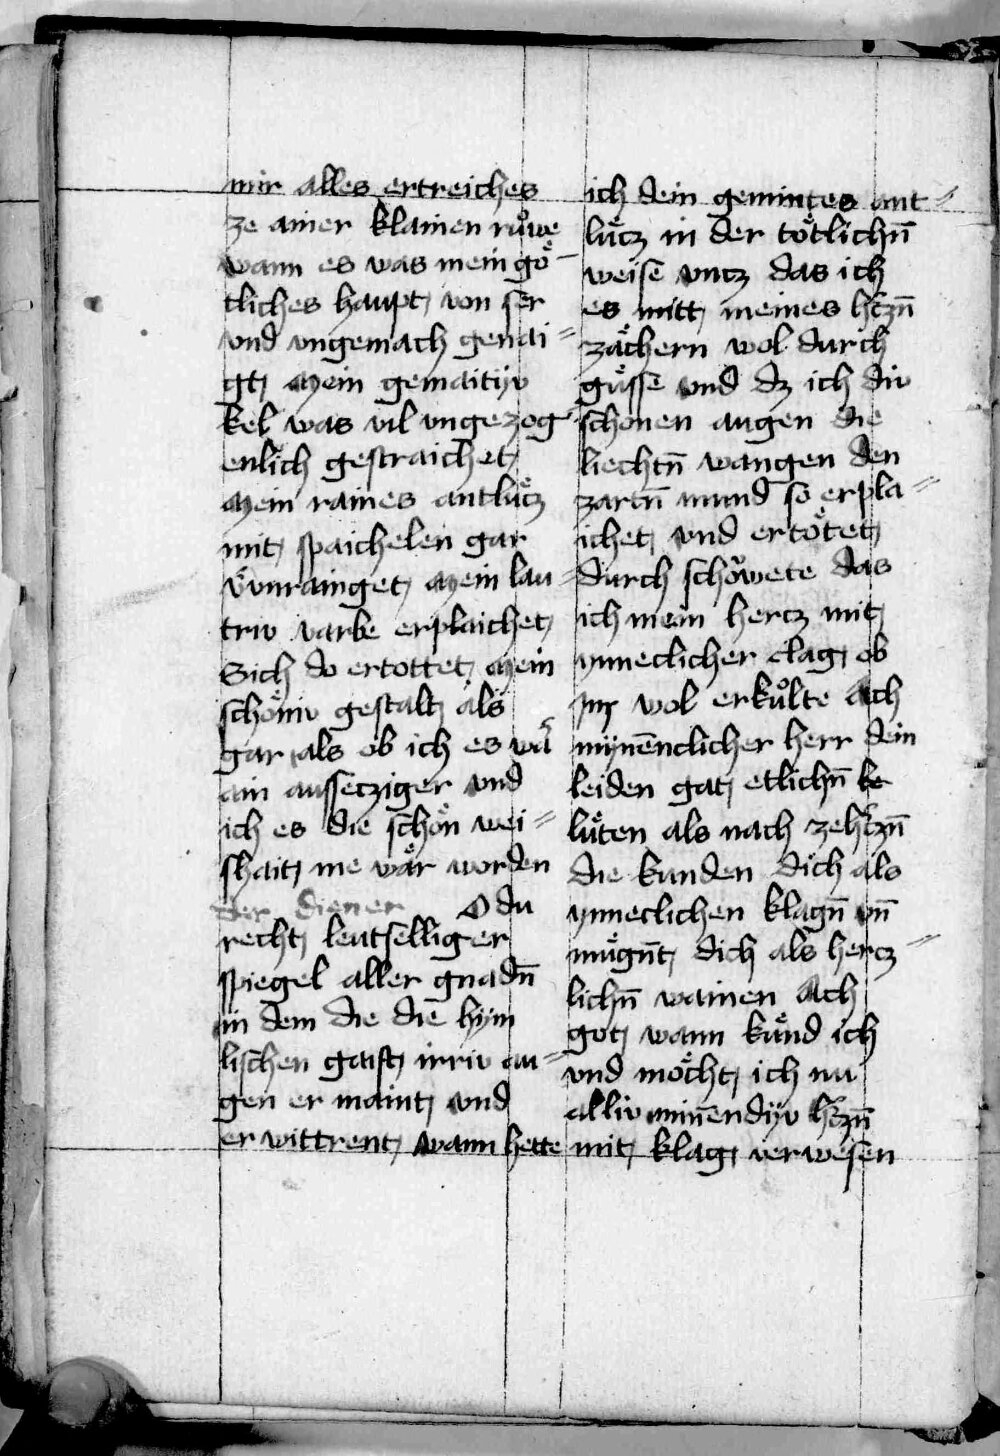 mir alles ertreiches
ze ainer klainen růwe
wann es was mein gö-
tliches haupt von ser
vnd vngemach genai=
gt Mein gemaitiv
kel was vil vngezog
enlich gestraichet
Mein raines antlücz
mit spaichelen gar
vervnrainget Mein lau=
triv varbe erplaichet
Sich do ertottet Mein
schöniv gestalt als
gar als ob ich es wär
ain aussecziger vnd
ich es die schön wei=
shait nie wär worden
der diener O du
recht leutselliger
spiegel aller gnadn̄
in dem die die hym
lischen gaist irriv au=
gen er maint vnd
er wittrent wann hette
ich dein gemintes ant=
lücz in der tötlichn̄
weise vncz das ich
es mitt meines hc̄zn̄
zächern wol durch
güsse vnd dz ich div
schonen augen die
liechtn̄ wangen den
zartn̄ mund so erpla=
ichet vnd ertötet
durch schöwete das
ich mein hercz mit
ynneclicher clag ob
Im wol erkůlte Ach
mynēnclicher herr dein
leiden gat etlichn̄ le
lüten als nach zehc̄zn̄
die kunden dich als
ynneclichen klagn̄ vn̄
mügn̄t dich als hercz=
lichn̄ wainen Ach
got wann künd ich
vnd möcht ich nu
alliv min̄endiv hc̄zn̄
mit klag verwesen